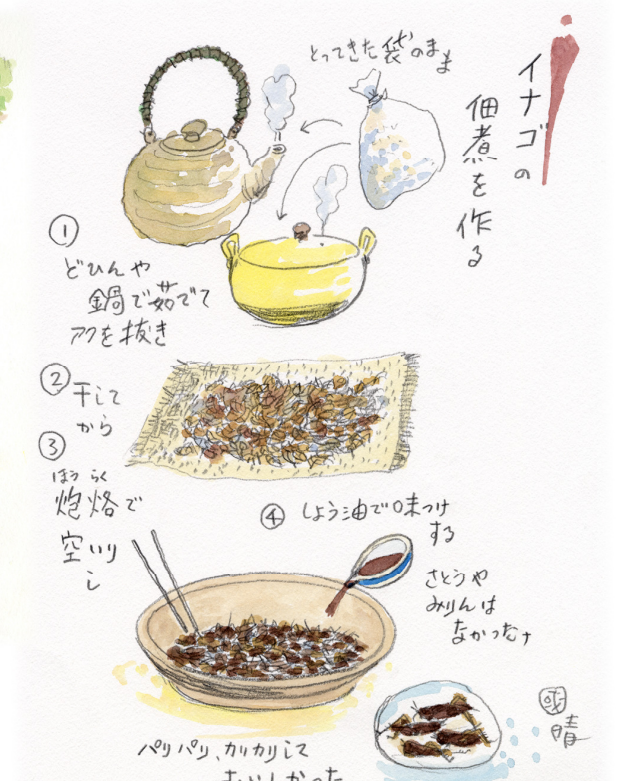 イナゴの
佃煮を作る
とってきた袋のまま
①
どひんや
鍋で茹でて
アクを抜き
②
干して
から
③
ほうらく
炮烙で
空いり
し
④ しょう油で味つけ
する
さとうや
みりんは
なかったナ
パリパリ、カリカリして
おいしかった
晴